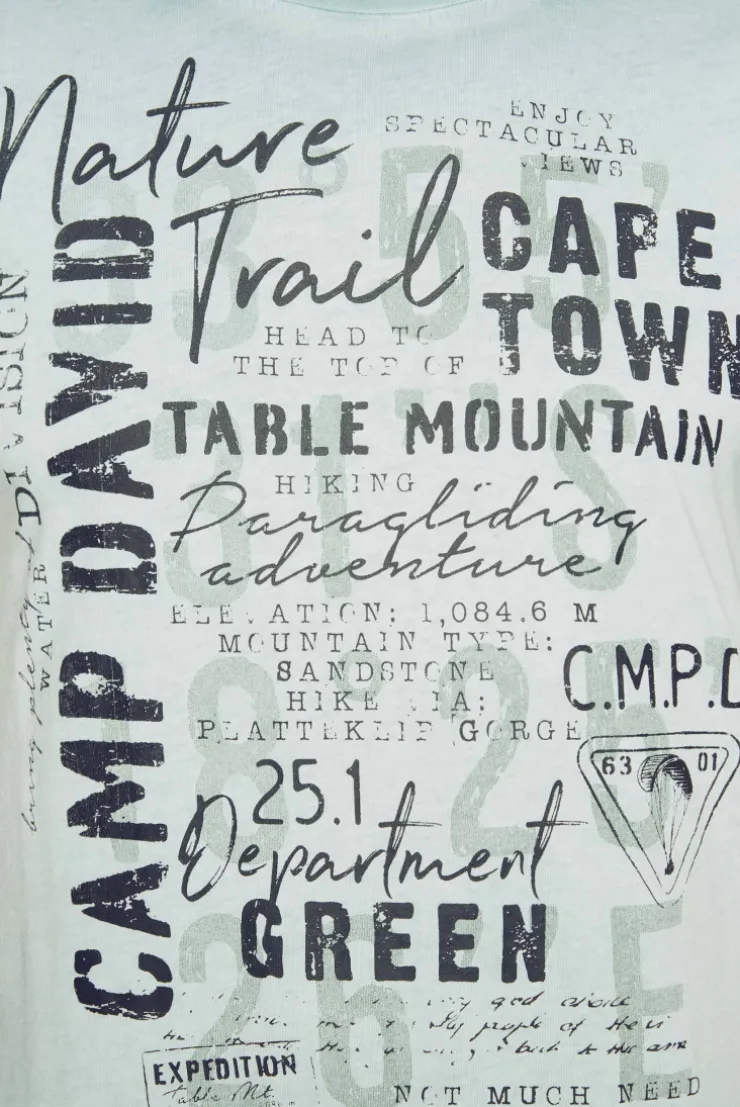 Nature
ENJOY
SPECTACULAR
VIEWS
Trail
CAPE
TOWN
HEAD TO
THE TOP OF
TABLE MOUNTAIN
HIKING
Paragliding
adventure
ELEVATION: 1,084.6 M
MOUNTAIN TYPE:
SANDSTONE
HIKE VIA:
PLATTEKLIP GORGE
C.M.P.D
63 01
25.1
Department
GREEN
CAMP DAVID
DIVISION
bring plenty of
WATER
33°55'
31'S
18°25'
26"E
people of
back to
EXPEDITION
Table Mt.
NOT MUCH NEED